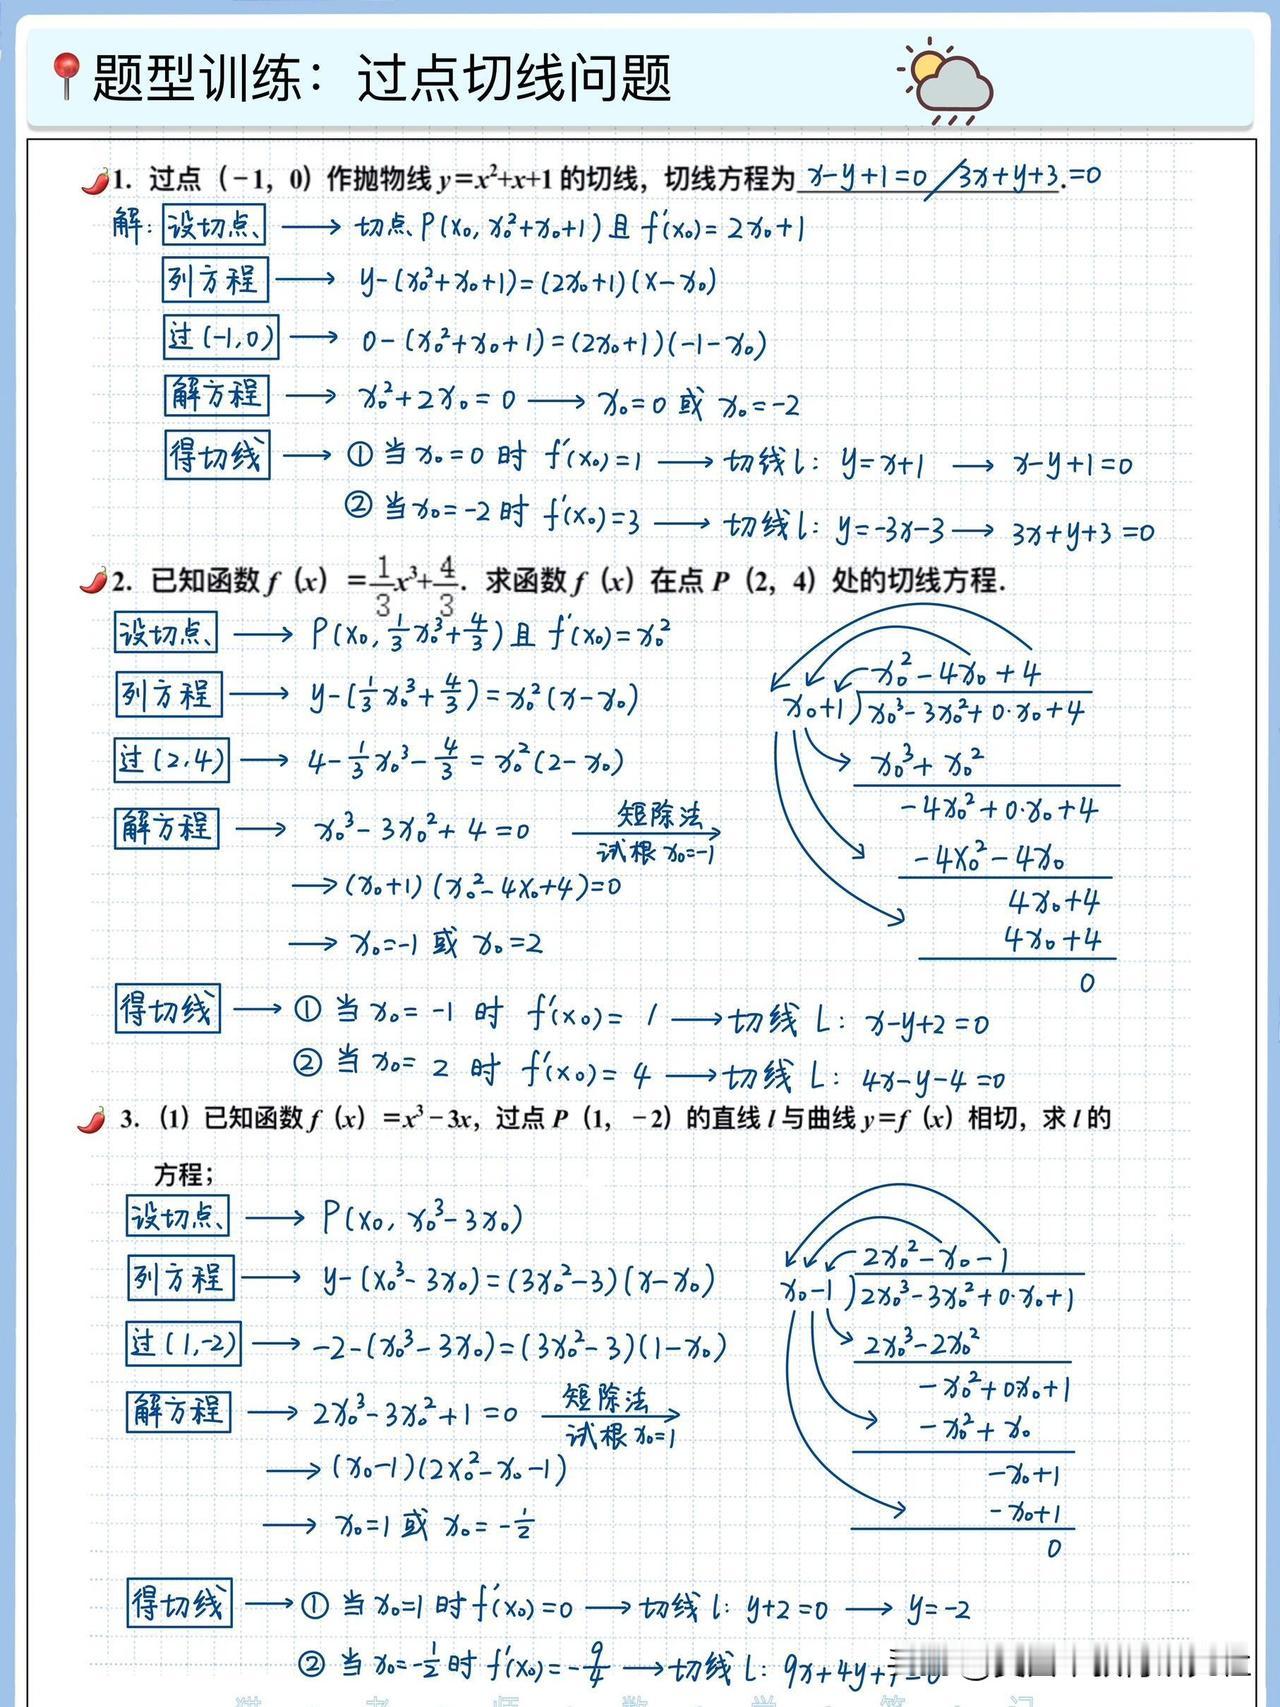 题型训练：过点切线问题
1. 过点（-1，0）作抛物线 y=x²+x+1 的切线，切线方程为 x-y+1=0/3x+y+3.=0
解: 设切点 → 切点 P(x₀, x₀²+x₀+1) 且 f'(x₀)=2x₀+1
列方程 → y-(x₀²+x₀+1)=(2x₀+1)(x-x₀)
过(-1,0) → 0-(x₀²+x₀+1)=(2x₀+1)(-1-x₀)
解方程 → x₀²+2x₀=0 → x₀=0 或 x₀=-2
得切线 → ① 当 x₀=0 时 f'(x₀)=1 → 切线 l: y=x+1 → x-y+1=0
② 当 x₀=-2 时 f'(x₀)=3 → 切线 l: y=-3x-3 → 3x+y+3=0
2. 已知函数 f（x）=1/3x³+4/3. 求函数 f（x）在点 P（2，4）处的切线方程.
设切点 → P(x₀, 1/3x₀³+4/3) 且 f'(x₀)=x₀²
列方程 → y-(1/3x₀³+4/3)=x₀²(x-x₀)
过(2,4) → 4-1/3x₀³-4/3=x₀²(2-x₀)
解方程 → x₀³-3x₀²+4=0 短除法 试根 x₀=-1
→ (x₀+1)(x₀²-4x₀+4)=0
→ x₀=-1 或 x₀=2
x₀²-4x₀+4
x₀+1)x₀³-3x₀²+0·x₀+4
x₀³+x₀²
-4x₀²+0·x₀+4
-4x₀²-4x₀
4x₀+4
4x₀+4
0
得切线 → ① 当 x₀=-1 时 f'(x₀)=1 → 切线 L: x-y+2=0
② 当 x₀=2 时 f'(x₀)=4 → 切线 L: 4x-y-4=0
3.（1）已知函数 f（x）=x³-3x，过点 P（1，-2）的直线 l 与曲线 y=f（x）相切，求 l 的
方程；
设切点 → P(x₀, x₀³-3x₀)
列方程 → y-(x₀³-3x₀)=(3x₀²-3)(x-x₀)
过(1,-2) → -2-(x₀³-3x₀)=(3x₀²-3)(1-x₀)
解方程 → 2x₀³-3x₀²+1=0 短除法 试根 x₀=1
→ (x₀-1)(2x₀²-x₀-1)
→ x₀=1 或 x₀=-1/2
2x₀²-x₀-1
x₀-1)2x₀³-3x₀²+0·x₀+1
2x₀³-2x₀²
-x₀²+0x₀+1
-x₀²+x₀
-x₀+1
-x₀+1
0
得切线 → ① 当 x₀=1 时 f'(x₀)=0 → 切线 l: y+2=0 → y=-2
② 当 x₀=-1/2 时 f'(x₀)=-9/4 → 切线 L: 9x+4y+